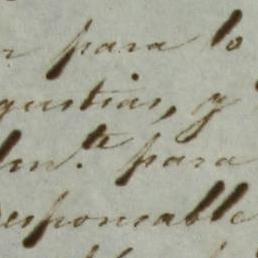 para lo
gustias, y
lm.te para
responsable